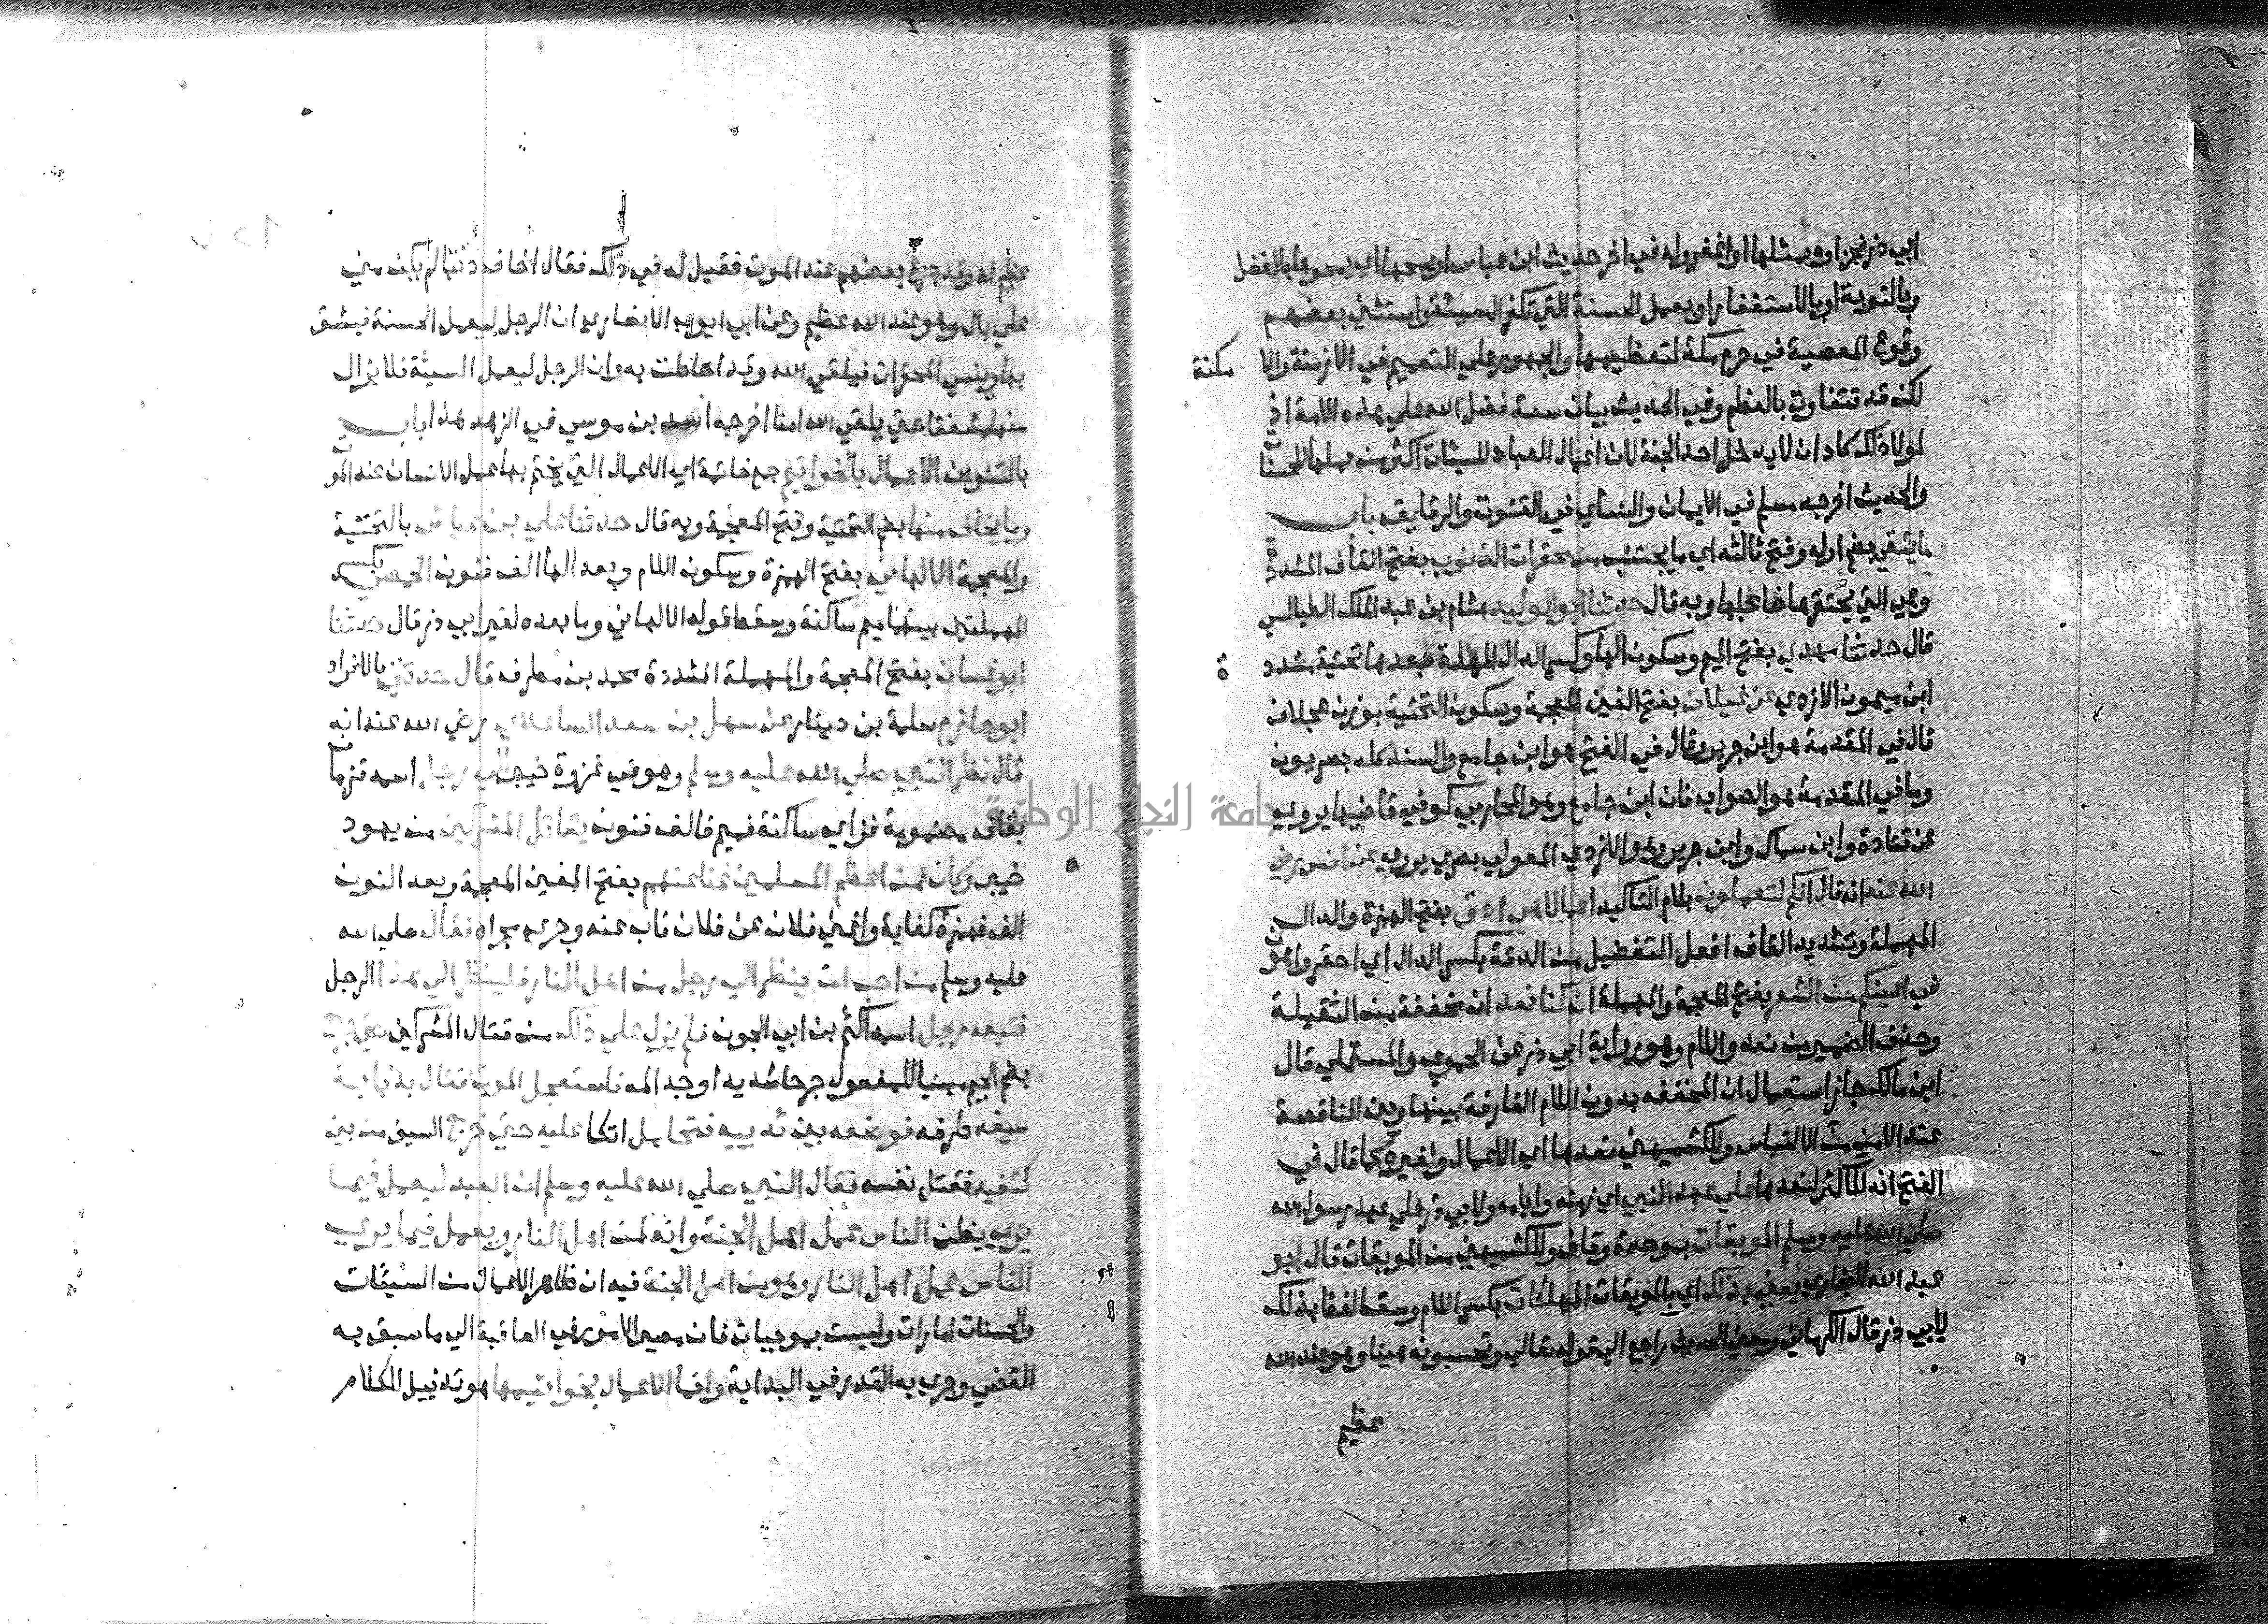 ابي ذر فجزاوه بمثلها او اغفر وله في اخر حديث ابن عباس او يمحها اي يمحوها بالفضل
وبالتوبة او بالاستغفار او بعمل الحسنة التي تكفر السيئة واستثني بعضهم
وقوع المعصية في حرم مكة لتعظيمها والجمهور علي التعميم في الازمنة والا مكنة
لكن قد تتفاوت بالعظم وفي الحديث بيان سعة فضل الله علي هذه الامة اذ
لولا ذلك كاد ان لا يدخل احد الجنة لان اعمال العباد للسيئات اكثر من عملها للحسنات
والحديث اخرجه مسلم في الايمان والنساي في القنوت والرقايق باب
ما يتقي بضم اوله وفتح ثالثه اي ما يجتنب من محقرات الذنوب بفتح القاف المشددة
وهي التي يحتقرها فاعلها وبه قال حدثنا ابو الوليد هشام بن عبد الملك الطيالسي
قال حدثنا مهدي بفتح الميم وسكون الها وكسر الدال المهملة فبعدها تحتية مشددة
ابن ميمون الازدي عن غيلان بفتح الغين المعجمة وسكون التحتية بوزن عجلان
قال في المقدمة هو ابن جرير وقال في الفتح هو ابن جامع والسند كله بصريون
وما في المقدمة هو الصواب فان ابن جامع وهو المحاربي كوفي قاضيها يروي
عن قتادة وابن سماك وابن جرير وهو الازدي المعولي بصري يروي عن انس رضي
الله عنه انه قال انكم لتعملون بلام التاكيد اعمالا هي ادق بفتح الهمزة والدال
المهملة وتشديد القاف افعل التفضيل من الدقة بكسر الدال اي احقر واهون
في اعينكم من الشعر بفتح المعجمة والمهملة ان كنا نعد ان مخففة من الثقيلة
وحذف الضمير من نعد واللام وهو رواية ابي ذر عن الحموي والمستملي قال
ابن مالك جاز استعمال ان المخففه بدون اللام الفارقة بينها وبين النافعة
عند الامن من الالتباس وللكشميهني نعدها اي الاعمال ولغيره كما قال في
الفتح انه للاكثر لنعدها علي عهد النبي اي زمنه وايامه ولابي ذر علي عهد رسول الله
صلي الله عليه وسلم الموبقات بموحدة وقاف وللكشميهني من الموبقات قال ابو
عبد الله البخاري يعني بذلك اي بالموبقات المهلكات بكسر اللام وسقط لفظ بذلك
لابي ذر قال الكرماني ومعني الحديث راجع الي قوله تعالي وتحسبونه هينا وهو عند الله
عظيم
عظيم اه وقد جزع بعضهم عند الموت فقيل له في ذلك فقال اخاف ذنبا لم يكن مني
علي بال وهو عند الله عظيم وعن ابي ايوب الانصاري ان الرجل ليعمل الحسنة فيثق
بها وينسي المحقرات فيلقي الله وقد احاطت به وان الرجل ليعمل السيئة فلا يزال
منها مشفقا حتي يلقي الله امنا اخرجه اسد بن موسي في الزهد هذا باب
بالتنوين الاعمال بالخواتيم جمع خاتمة اي الاعمال التي يختم بها عمل الانسان عند الموت
وما يخاف منها بضم التحتية وفتح المعجمة وبه قال حدثنا علي بن عياش بالتحتية
والمعجمة الالهاني بفتح الهمزة وسكون اللام وبعد الها الف فنون الحمصي بكسر
المهملتين بينهما ميم ساكنة وسقط قوله الالهاني وما بعده لغير ابي ذر قال حدثنا
ابو غسان بفتح المعجمة والمهملة المشددة محمد بن مطرف قال حدثني بالافراد
ابو حازم سلمة بن دينار عن سهل بن سعد الساعدي رضي الله عنه انه
قال نظر النبي صلي الله عليه وسلم وهو في غزوة خيبر الي رجل اسمه قزمان
بقاف مضمومة فزاي ساكنة فميم فالف فنون يقاتل المشركين من يهود
خيبر وكان من اعظم المسلمين غنا عنهم بفتح الغين المعجمة وبعد النون
الف فهمزة كفاية واغني فلان عن فلان ناب عنه وجري مجراه فقال صلي الله
عليه وسلم من احب ان ينظر الي رجل من اهل النار فلينظر الي هذا الرجل
فتبعه رجل اسمه اكثم بن ابي الجون فلم يزل علي ذلك من قتال المشركين حتي جرح
بضم الجيم مبنيا للمفعول جرحا شديدا وجد المه فاستعجل الموت فقال بذبابة
سيفه طرفه فوضعه بين ثدييه فتحامل اتكا عليه حتي خرج السيف من بين
كتفيه فقتل نفسه فقال النبي صلي الله عليه وسلم ان العبد ليعمل فيما
يري يظن الناس عمل اهل الجنة وانه لمن اهل النار ويعمل فيما يري
الناس عمل اهل النار وهو من اهل الجنة فيه ان ظاهر الاعمال من السيئات
والحسنات امارات وليست بموجبات فان مصير الامور في العاقبة الي ما سبق به
القضي وجري به القدر في البداية وانما الاعمال بخواتيمها هو تذييل الكلام
جامعة النجاح الوطنية